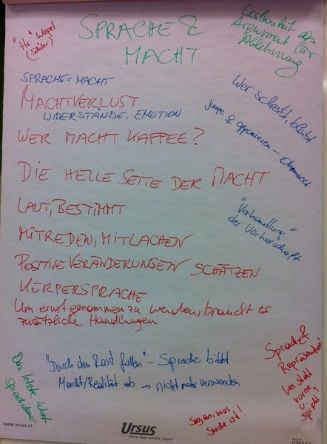 "Hi" Wapperl
(später)
SPRACHE &
MACHT
Lesbarkeit als
Argument für
Ablehnung
SPRACHE = MACHT
MACHTVERLUST
WIDERSTÄNDE, EMOTION
WER MACHT KAFFEE?
Wer schreit, bleibt
Junge & opponieren – Ohnmacht
DIE HELLE SEITE DER MACHT
LAUT, BESTIMMT
"Verhandlung"
der Vorherrschaft
MITREDEN, MITLACHEN
POSITIVE VERÄNDERUNGEN SCHÄTZEN
KÖRPERSPRACHE
Um ernst genommen zu werden, braucht es
zusätzliche Handlungen
Sprache &
Repräsentanz:
Wer steht
vorne &
spricht?
"Durch den Rost fallen" – Sprache bildet
Macht/Realität ab → nicht mehr verwenden
Das letzte Wort
Sagen, was
Sache ist!
www.ursus.at
Ursus